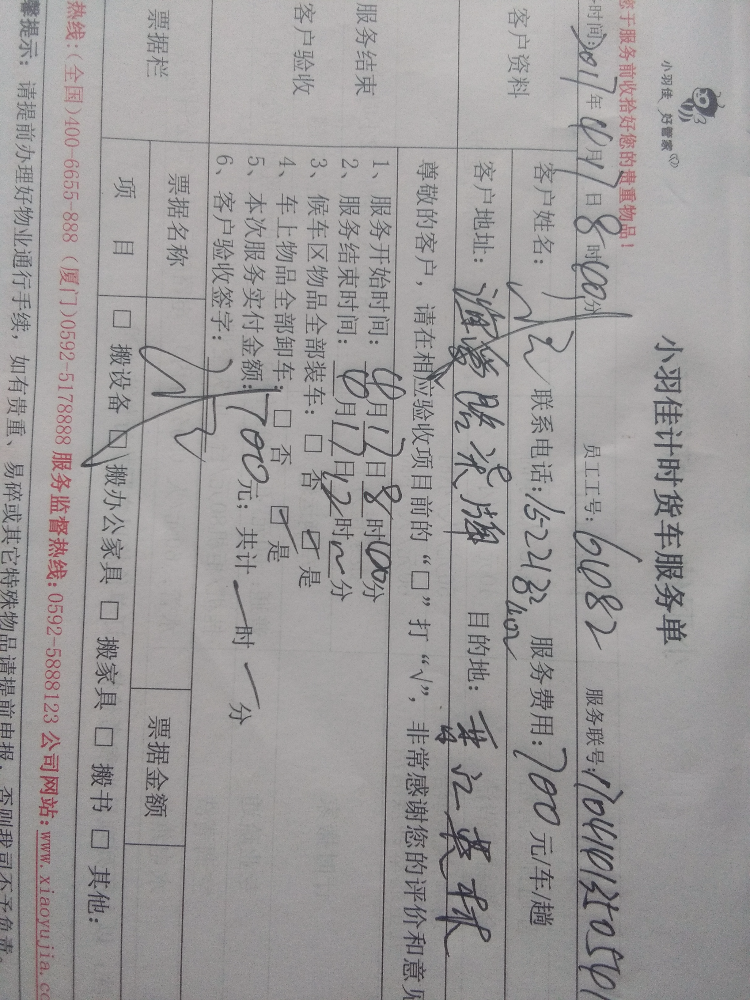 小羽佳 好管家
小羽佳计时货车服务单
您于服务前收拾好您的贵重物品!
时间:2017年4月17日8时00分 员工工号:6082 服务联号:
客户资料
客户姓名: 联系电话: 服务费用:700元/车/趟
客户地址: 目的地:
服务结束
客户验收
尊敬的客户,请在相应验收项目前的“□”打“√”,非常感谢您的评价和意见
1、服务开始时间:4月17日8时00分
2、服务结束时间:4月17日12时分
3、候车区物品全部装车:□否 ☑是
4、车上物品全部卸车:□否 ☑是
5、本次服务实付金额:700元;共计一时一分
6、客户验收签字:
票据栏
票据名称 票据金额
项目 □搬设备 ☑搬办公家具 □搬家具 □搬书 □其他:
热线:(全国)400-6655-888(厦门)0592-5178888 服务监督热线:0592-5888123 公司网站:www.xiaoyujia.co
馨提示:请提前办理好物业通行手续,如有贵重、易碎或其它特殊物品请提前申报,否则我司不予负责。